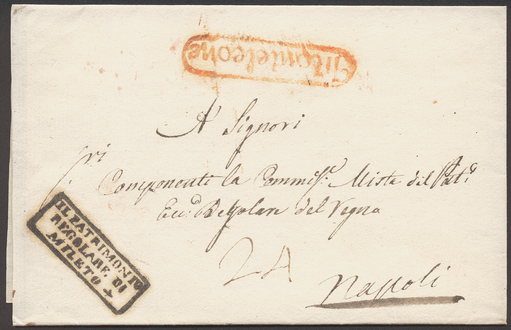 Monteleone
A' Signori
ri
Componenti la Commiss.e Mista del Pat.o
Ecc.o Regolare del Regno
24
Napoli
IL PATRIMONIO
REGOLARE DI
MILETO